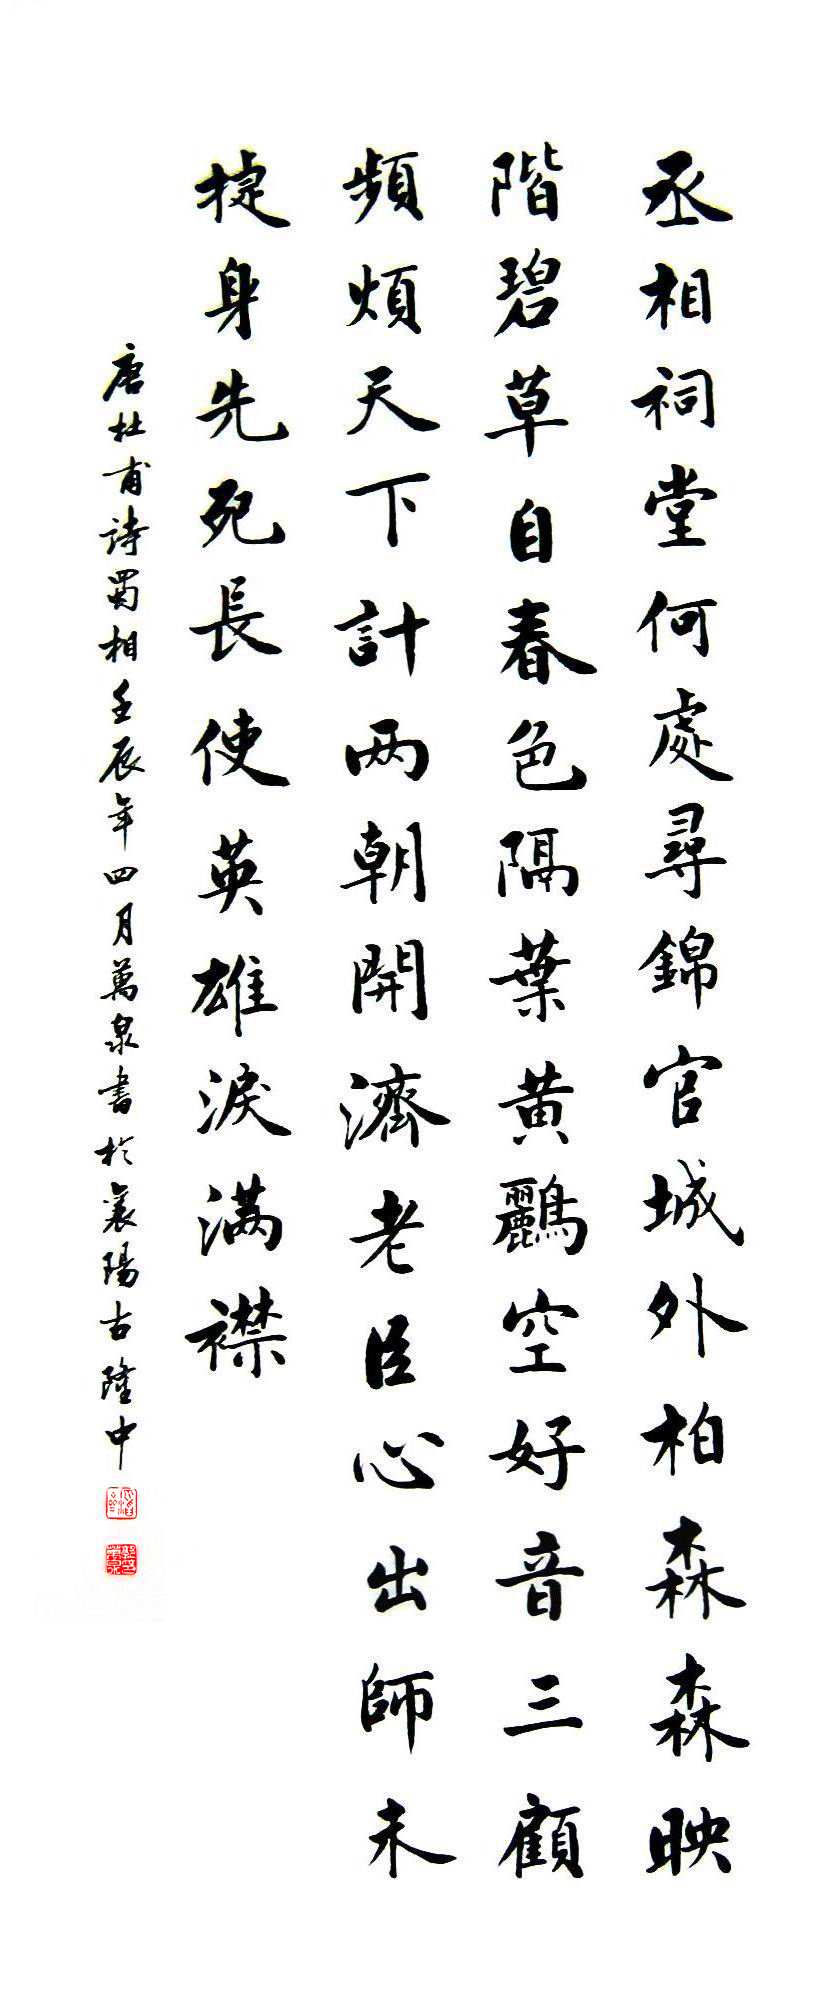 丞相祠堂何處尋錦官城外柏森森映
階碧草自春色隔葉黄鸝空好音三顧
頻煩天下計两朝開濟老臣心出師未
捷身先死長使英雄淚满襟
唐杜甫詩蜀相壬辰年四月萬泉書於襄陽古隆中